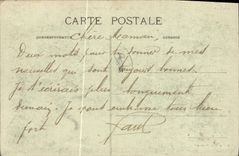 CARTE POSTALE
CORRESPONDANCE
ADRESSE
Chère maman,
Deux mots pour te donner de mes
nouvelles qui sont toujours bonnes.
Je t'écrirais plus longuement
demain. Je vous embrasse tous bien
fort
Paul